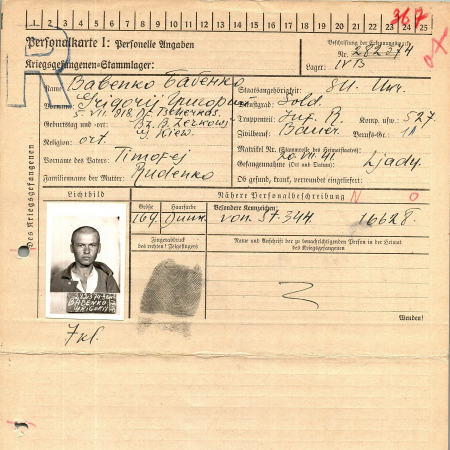 1 2 3 4 5 6 7 8 9 10 11 12 13 14 15 16 17 18 19 20 21 22 23 24 25
367
Personalkarte I: Personelle Angaben
Kriegsgefangenen-Stammlager:
Beschriftung der Erkennungsmarke
Nr. 282374
Lager: IV B
R
des Kriegsgefangenen
Name: Babenko Бабенко
Vorname: Grigorij Григорий
Geburtstag und -ort: 5. VII. 1918.
Kiew.
Religion: ort.
Vorname des Vaters: Timofej
Familienname der Mutter: Rudenko
Staatsangehörigkeit:
Dienstgrad: Sold.
Truppenteil: Inf. R. Komp. usw.: 527.
Zivilberuf: Bauer. Berufs-Gr.:
Matrikel Nr. (Stammrolle des Heimatstaates):
Gefangennahme (Ort und Datum): 20. VII. 41. Ljady.
Ob gesund, krank, verwundet eingeliefert:
Lichtbild
Nähere Personalbeschreibung
N O
Größe
Haarfarbe
Besondere Kennzeichen:
169
von St. 344 16628.
Fingerabdruck
des rechten! Zeigefingers
Name und Anschrift der zu benachrichtigenden Person in der Heimat
des Kriegsgefangenen
BABENKO
GRIGORIJ
Wenden!
7 kl.